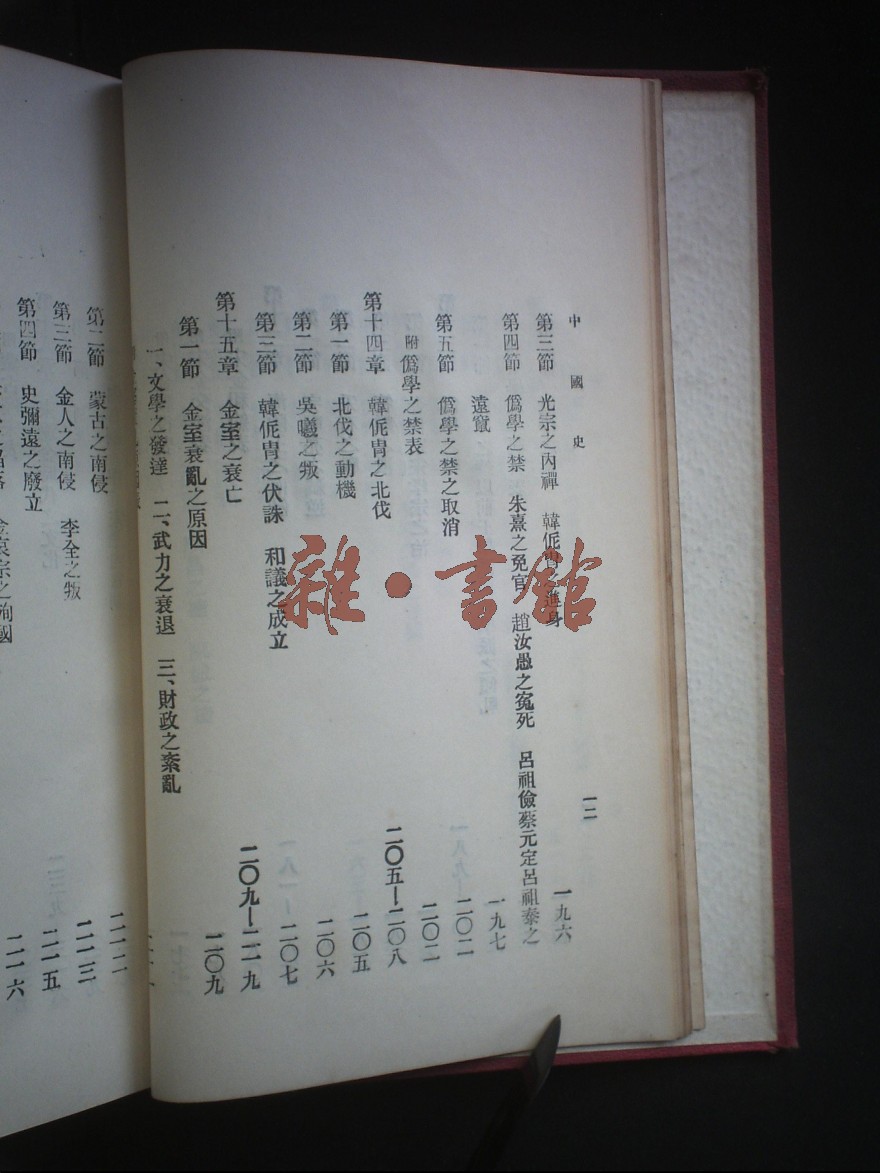 中國史
一二
第三節 光宗之內禪 韓侂冑 進身 一九六
第四節 僞學之禁 朱熹之免官 趙汝愚之寃死 呂祖儉蔡元定呂祖泰之
遠竄 一九七
第五節 僞學之禁之取消 二〇二
附僞學之禁表 二〇二
第十四章 韓侂冑之北伐 二〇五—二〇八
第一節 北伐之動機 二〇五
第二節 吳曦之叛 二〇六
第三節 韓侂冑之伏誅 和議之成立 二〇七
第十五章 金室之衰亡 二〇九—二一九
第一節 金室衰亂之原因 二〇九
一、文學之發達 二、武力之衰退 三、財政之紊亂
第二節 蒙古之南侵 二一二
第三節 金人之南侵 李全之叛 二一三
第四節 史彌遠之廢立 二一五
金哀宗之殉國 二一六
雜·書館